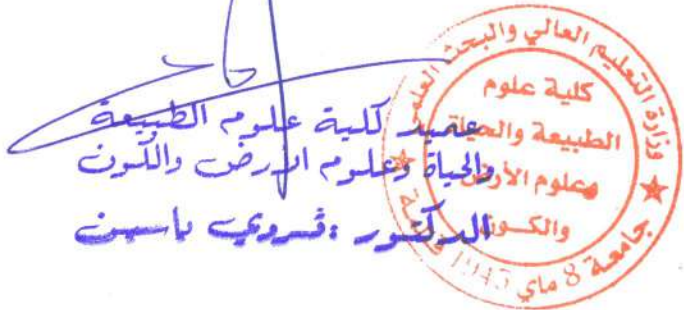 عميد كلية علوم الطبيعة
والحياة وعلوم الأرض والكون
الدكتور : ڤروي ياسين
وزارة التعليم العالي والبحث العلمي
كلية علوم
الطبيعة والحياة
وعلوم الأرض
والكون
جامعة 8 ماي 1945